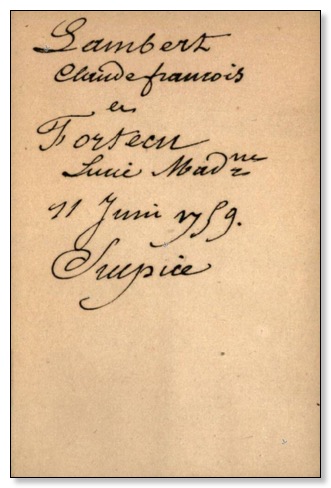 Lambert
Claude francois
et
Fortecu
Lucie Mad^ne
11 Juin 1759.
Sulpice